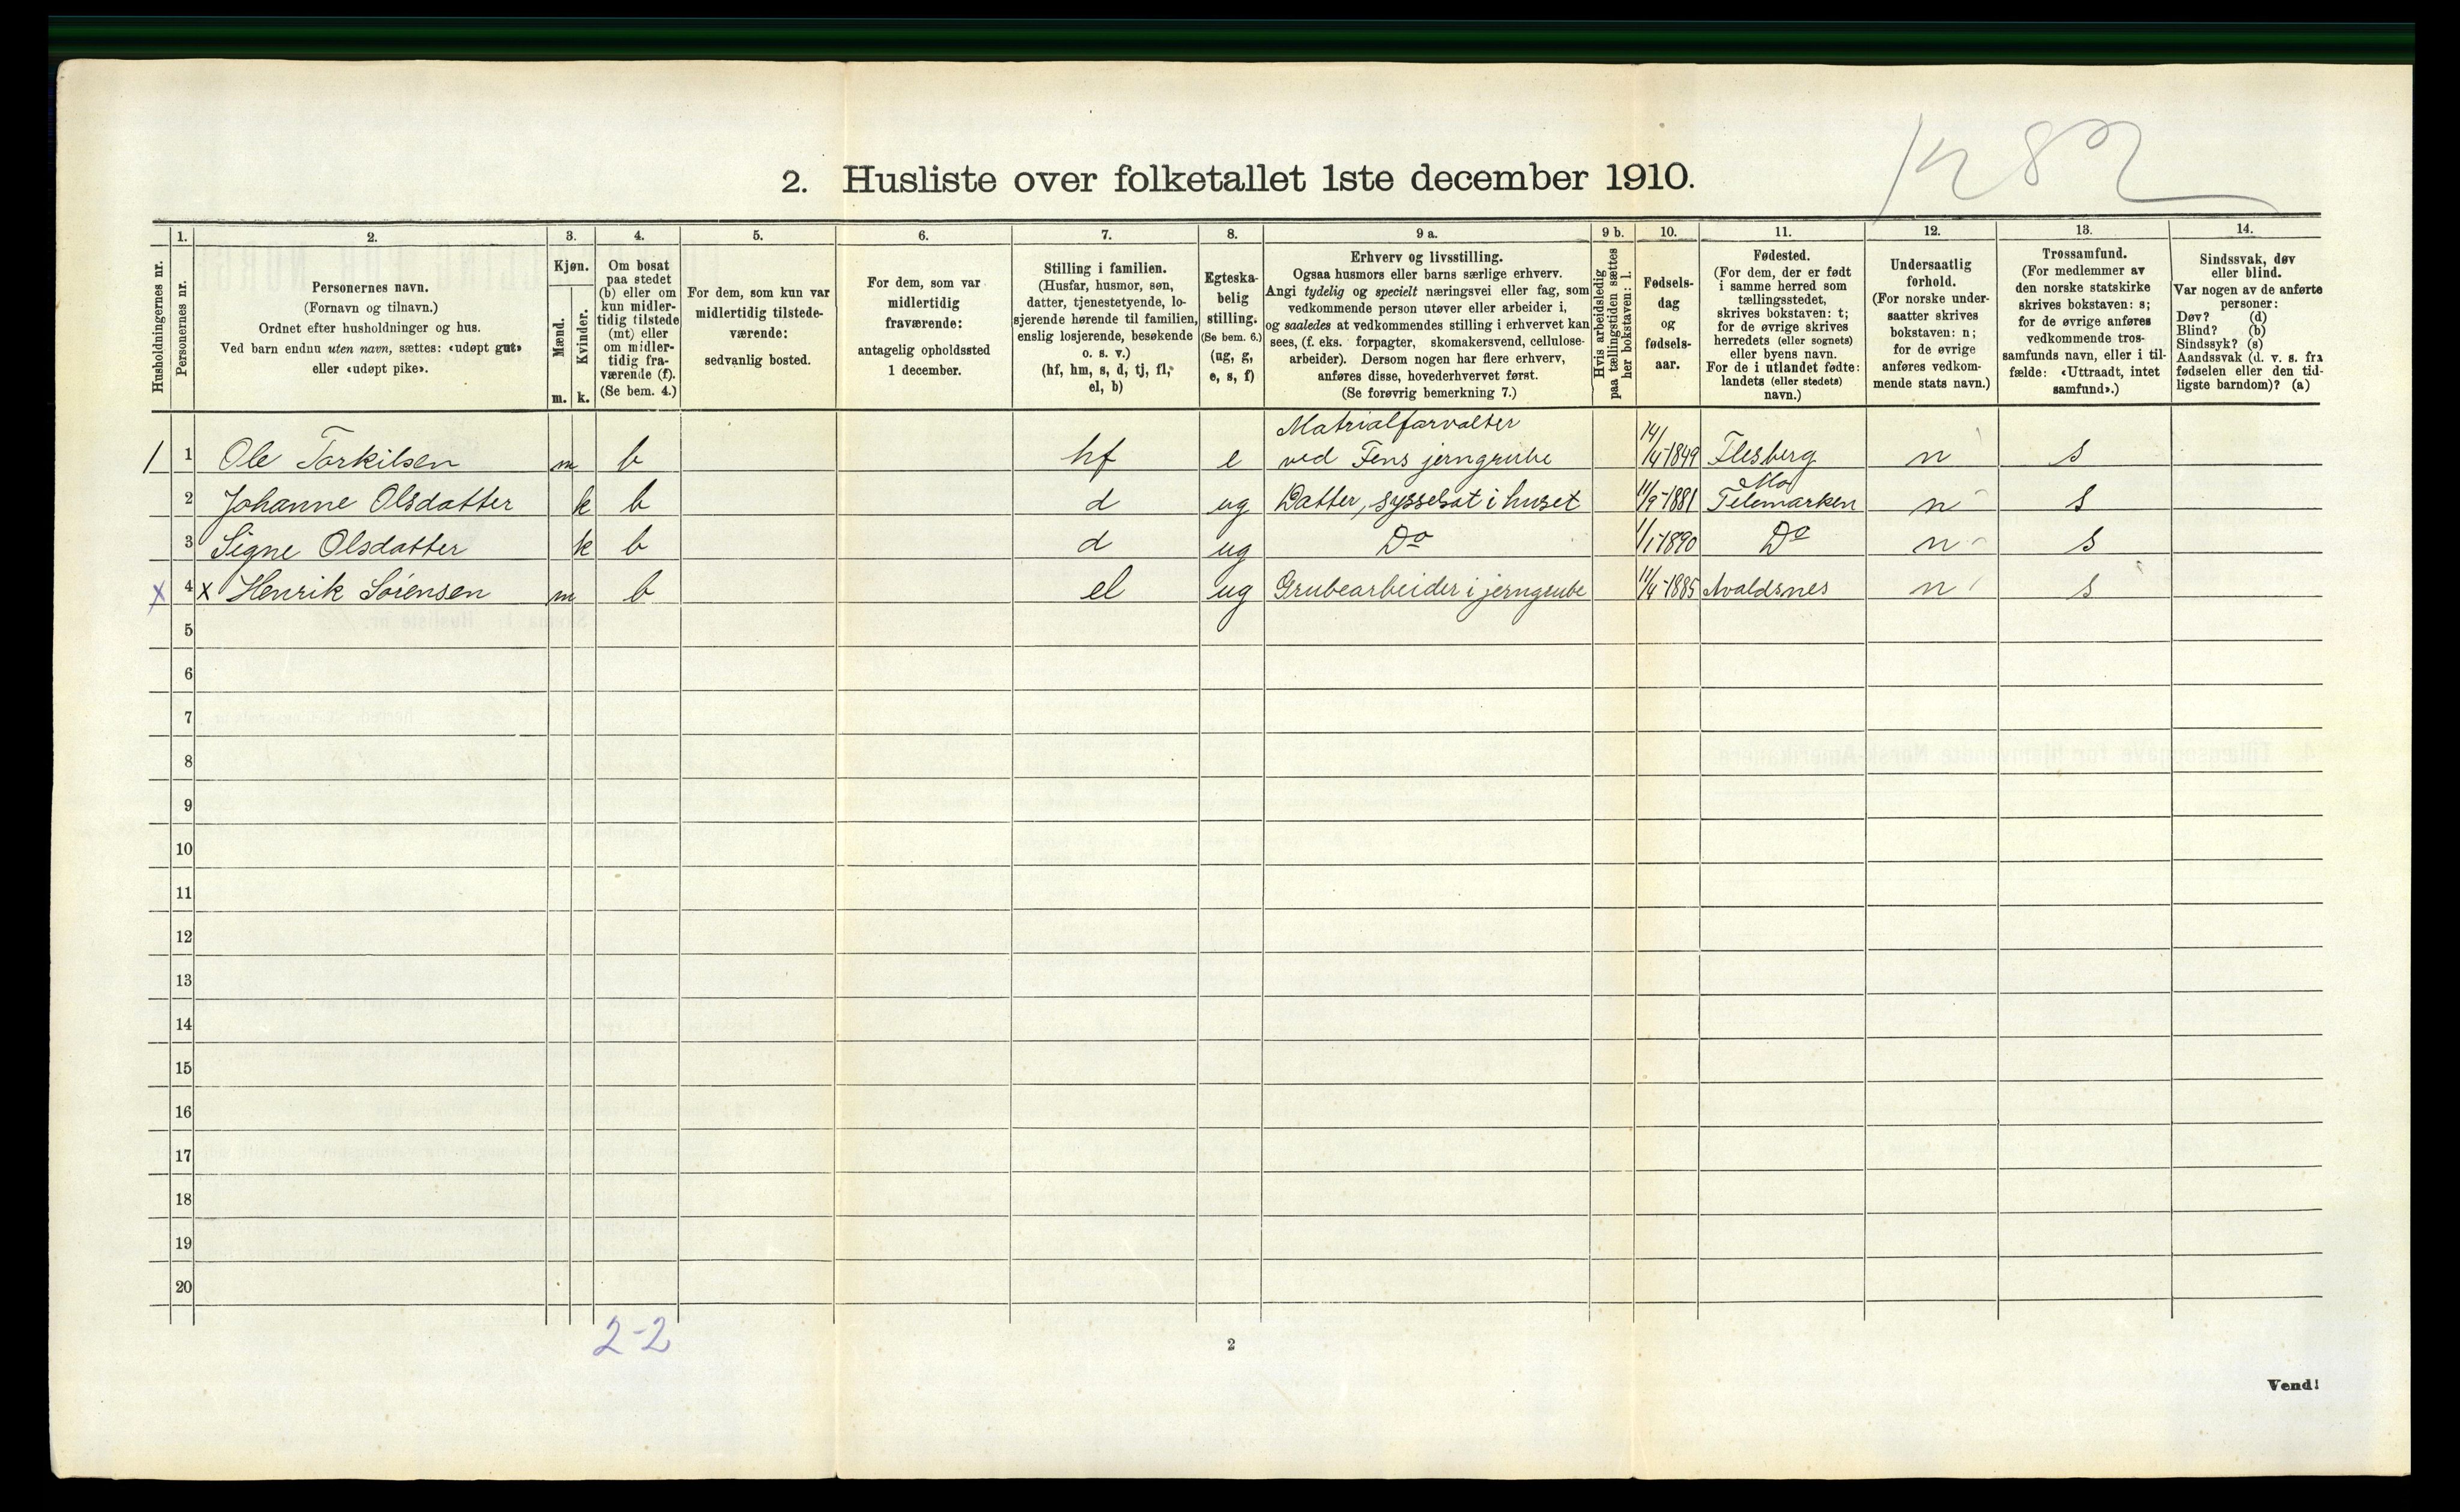 1282
2. Husliste over folketallet 1ste december 1910.
Husholdningernes nr.
1.
Personernes nr.
2.
Personernes navn.
(Fornavn og tilnavn.)
Ordnet efter husholdninger og hus.
Ved barn endnu uten navn, sættes: «udøpt gut»
eller «udøpt pike».
3.
Kjøn.
Mænd.
Kvinder.
m. k.
4.
Om bosat
paa stedet
(b) eller om
kun midler-
tidig tilstede
(mt) eller
om midler-
tidig fra-
værende (f).
(Se bem. 4.)
5.
For dem, som kun var
midlertidig tilstede-
værende:
sedvanlig bosted.
6.
For dem, som var
midlertidig
fraværende:
antagelig opholdssted
1 december.
7.
Stilling i familien.
(Husfar, husmor, søn,
datter, tjenestetyende, lo-
sjerende hørende til familien,
enslig losjerende, besøkende
o. s. v.)
(hf, hm, s, d, tj, fl,
el, b)
8.
Egteska-
belig
stilling.
(Se bem. 6.)
(ug, g,
e, s, f)
9 a.
Erhverv og livsstilling.
Ogsaa husmors eller barns særlige erhverv.
Angi tydelig og specielt næringsvei eller fag, som
vedkommende person utøver eller arbeider i,
og saaledes at vedkommendes stilling i erhvervet kan
sees, (f. eks. forpagter, skomakersvend, cellulose-
arbeider). Dersom nogen har flere erhverv,
anføres disse, hovederhvervet først.
(Se forøvrig bemerkning 7.)
9 b.
Hvis arbeidsledig
paa tællingstiden sættes
her bokstaven: l.
10.
Fødsels-
dag
og
fødsels-
aar.
11.
Fødested.
(For dem, der er født
i samme herred som
tællingsstedet,
skrives bokstaven: t;
for de øvrige skrives
herredets (eller sognets)
eller byens navn.
For de i utlandet fødte:
landets (eller stedets)
navn.)
12.
Undersaatlig
forhold.
(For norske under-
saatter skrives
bokstaven: n;
for de øvrige
anføres vedkom-
mende stats navn.)
13.
Trossamfund.
(For medlemmer av
den norske statskirke
skrives bokstaven: s;
for de øvrige anføres
vedkommende tros-
samfunds navn, eller i til-
fælde: «Uttraadt, intet
samfund».)
14.
Sindssvak, døv
eller blind.
Var nogen av de anførte
personer:
Døv? (d)
Blind? (b)
Sindssyk? (s)
Aandssvak (d. v. s. fra
fødselen eller den tid-
ligste barndom)? (a)
Matrialforvalter
1 1 Ole Torkilsen m b hf e ved Fens jerngrube 14/4-1849 Flesberg n s
2 Johanne Olsdatter k b d ug Datter, sysselsat i huset 11/9-1881 Mo Telemarken n s
3 Signe Olsdatter k b d ug Do 1/1-1890 Do n s
x 4 x Henrik Sørensen m b el ug Grubearbeider i jerngrube 11/4-1885 Avaldsnes n s
5
6
7
8
9
10
11
12
13
14
15
16
17
18
19
20
2-2
2
Vend!